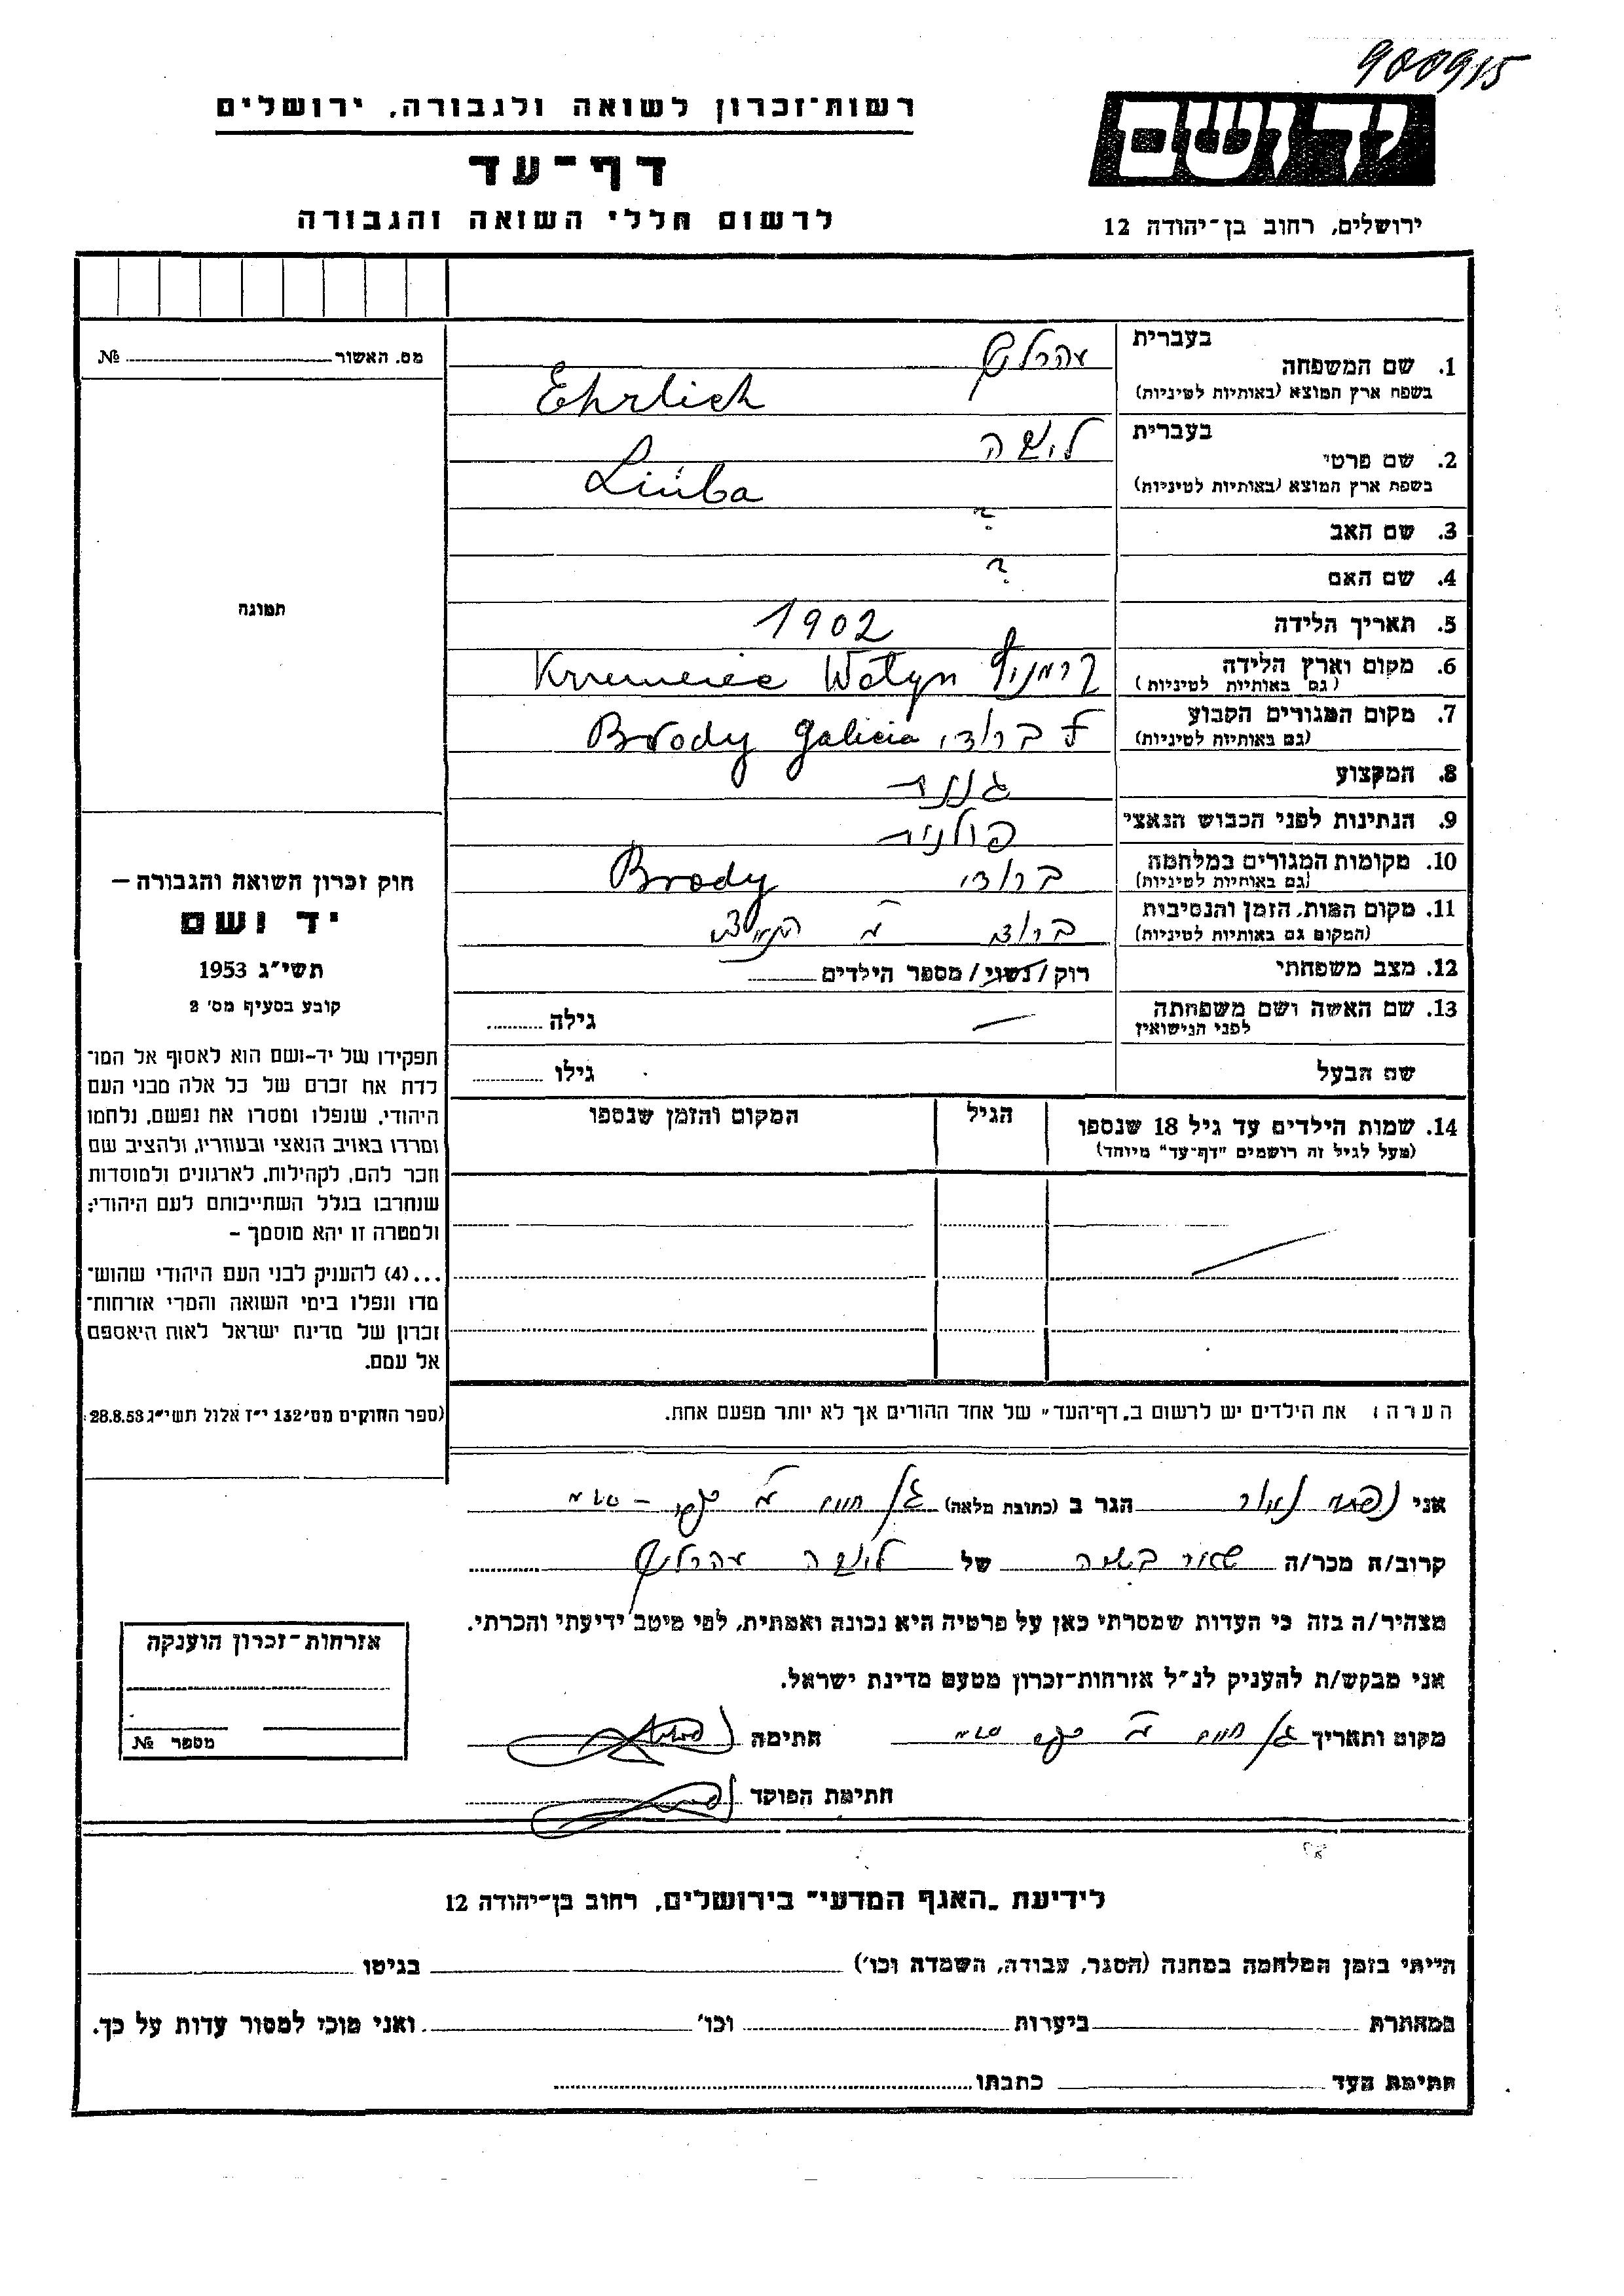 900915
רשות־זכרון לשואה ולגבורה, ירושלים
יד ושם
דף־עד
לרשום חללי השואה והגבורה
ירושלים, רחוב בן־יהודה 12
מס. האשור № 
בעברית
1. שם המשפחה
בשפת ארץ המוצא (באותיות לטיניות)
אהרליך
Ehrlich
בעברית
2. שם פרטי
בשפת ארץ המוצא (באותיות לטיניות)
ליובה
Liuba
3. שם האב ?
4. שם האם ?
5. תאריך הלידה 1902
6. מקום וארץ הלידה
(גם באותיות לטיניות)
Wołyn
7. מקום המגורים הקבוע
(גם באותיות לטיניות)
ברודי Brody Galicia
8. המקצוע
גננת
9. הנתינות לפני הכבוש הנאצי
פולנית
10. מקומות המגורים במלחמה
(גם באותיות לטיניות)
ברודי Brody
11. מקום המות, הזמן והנסיבות
(המקום גם באותיות לטיניות)
12. מצב משפחתי
רוק/נשוי/מספר הילדים
13. שם האשה ושם משפחתה
לפני הנישואין
גילה
שם הבעל
גילו
14. שמות הילדים עד גיל 18 שנספו
(מעל לגיל זה רושמים "דף־עד" מיוחד)
הגיל
המקום והזמן שנספו
הערה: את הילדים יש לרשום ב„דף־העד" של אחד ההורים אך לא יותר מפעם אחת.
תמונה
חוק זכרון השואה והגבורה –
יד ושם
תשי"ג 1953
קובע בסעיף מס' 2
תפקידו של יד-ושם הוא לאסוף אל המו־
לדת את זכרם של כל אלה מבני העם
היהודי, שנפלו ומסרו את נפשם, נלחמו
ומרדו באויב הנאצי ובעוזריו, ולהציב שם
וזכר להם, לקהילות, לארגונים ולמוסדות
שנחרבו בגלל השתייכותם לעם היהודי;
ולמטרה זו יהא מוסמך –
...(4) להעניק לבני העם היהודי שהוש־
מדו ונפלו בימי השואה והמרי אזרחות־
זכרון של מדינת ישראל לאות היאספם
אל עמם.
(ספר החוקים מס' 132 י"ז אלול תשי"ג 28.8.53)
אני הגר ב (כתובת מלאה)
קרוב/ה מכר/ה של ליובה אהרליך
מצהיר/ה בזה כי העדות שמסרתי כאן על פרטיה היא נכונה ואמתית, לפי מיטב ידיעתי והכרתי.
אני מבקש/ת להעניק לנ"ל אזרחות־זכרון מטעם מדינת ישראל.
מקום ותאריך חתימה
חתימת הפוקד
אזרחות־זכרון הוענקה
מספר №
לידיעת „האגף המדעי" בירושלים, רחוב בן־יהודה 12
הייתי בזמן המלחמה במחנה (הסגר, עבודה, השמדה וכו') בגיטו
במחתרת ביערות וכו' ואני מוכן למסור עדות על כך.
חתימת העד כתבתו